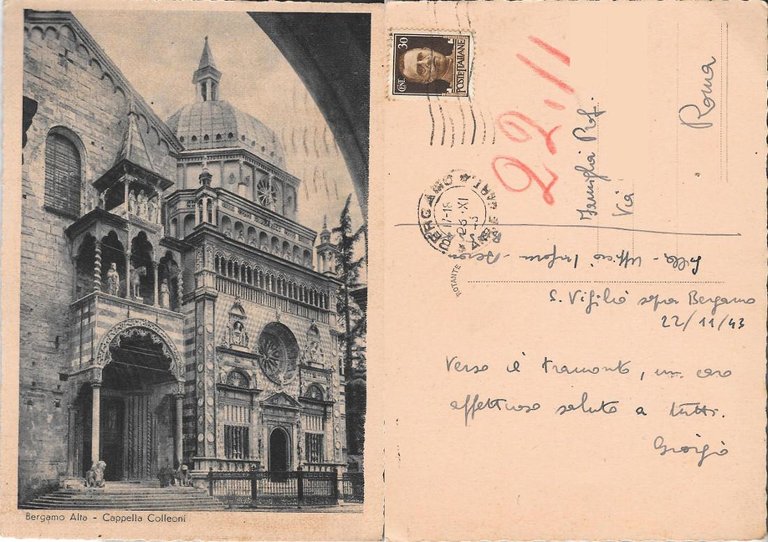 Bergamo Alta - Cappella Colleoni
30
CENT.
POSTE ITALIANE
BERGAMO
17-18
26.XI
22.11
Famiglia Prof.
Via
Roma
Uff
S. Vigilio sopra Bergamo
22/11/43
Verso il tramonto, un caro
affettuoso saluto a tutti.
Giorgio